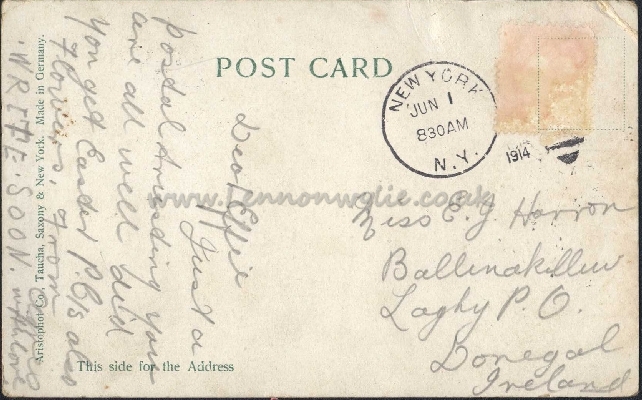 POST CARD
NEW YORK
JUN 1
830AM
N.Y.
1914
Miss E. J Harron
Ballinakillew
Laghy P.O.
Donegal
Ireland
Dear Effie
Just a
postal trusting you
are all well did
you get Easter P.C/s also
Flowers, from
WRITE. SOON. with love
This side for the Address
Aristophot Co., Taucha, Saxony & New York. Made in Germany.
www.lennonwylie.co.uk